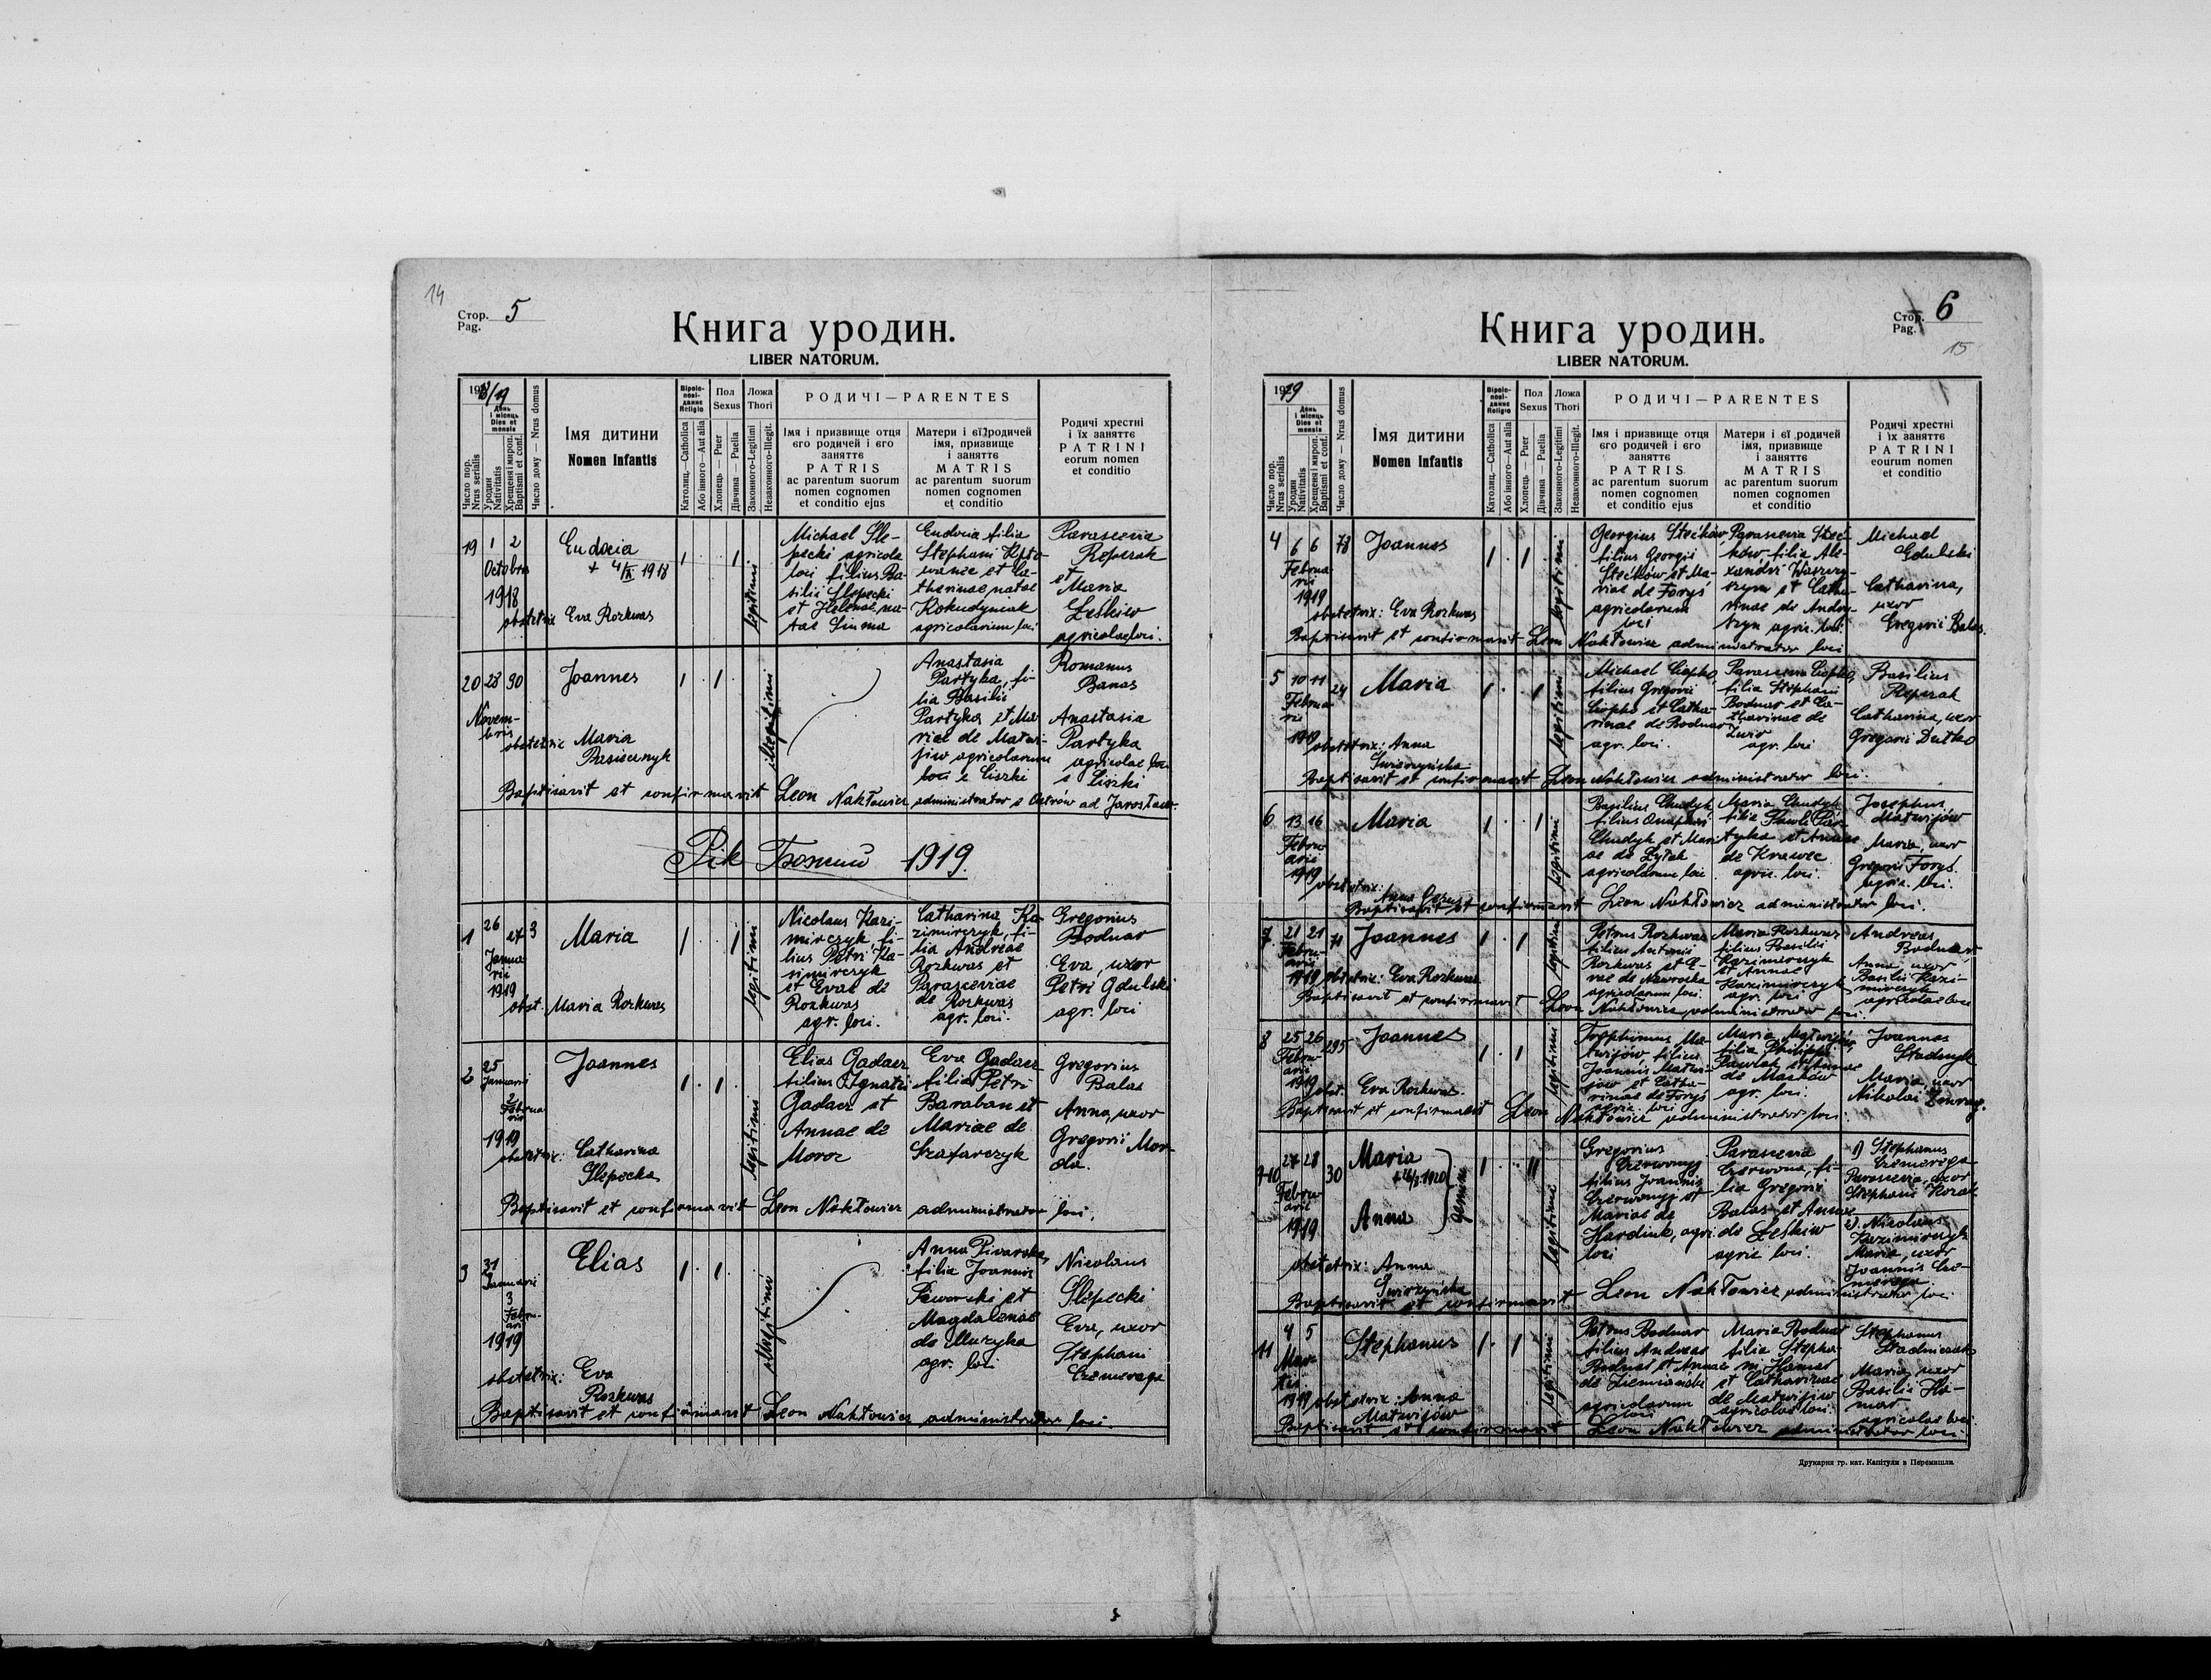 14
Стор. 5
Pag.
Книга уродин.
LIBER NATORUM.
1918/19
День і місяць
Dies et mensis
Число пор.
Nrus serialis
Уродин
Nativitatis
Хрещеня і мироп.
Baptismi et conf.
Число дому — Nrus domus
Імя дитини
Nomen Infantis
Віроісповіданє
Religio
Католиц.—Catholica
Або інного—Aut alia
Пол
Sexus
Хлопець — Puer
Дівчина — Puella
Ложа
Thori
Законного-Legitimi
Незаконного-Illegit.
РОДИЧІ — PARENTES
Імя і призвище отця
єго родичей і єго
занятє
PATRIS
ac parentum suorum
nomen cognomen
et conditio ejus
Матери і єї родичей
імя, призвище
і занятє
MATRIS
ac parentum suorum
nomen cognomen
et conditio
Родичі хрестні
і їх занятє
PATRINI
eorum nomen
et conditio
19 1 2
Octobris
1918
Eudocia
+ 4/X 1918
obstetrix Eva Rozkwas
legitimi
Michael Sle-
pecki agricola
loci filius Ba-
silii Slepecki
et Helenae na-
tae
Eudocia filia
Stephani
et Ca-
therinae natae
Kokudyniak
agricolarum loci
Parascevia
Reperak
et
Maria
Leśkiw
agricolae loci.
20 28 30
Novem-
bris
Joannes
obstetrix Maria
illegitimi
Anastasia
Partyka, fi-
lia Basilii
Partyka et Ma-
riae de Matwi-
jiw agricolarum
loci e Liszki
Romanus
Banas
Anastasia
Partyka
agricolae loci
e Liszki
Baptisavit et confirmavit Leon Nakłowicz administrator e Ostrów ad Jarosław.
Рік Божий 1919.
1 26 27 3
Janua-
rii
1919
Maria
obst. Maria Rozkwas
legitimi
Nicolaus Kazi-
mirczyk, fi-
lius Petri Ka-
zimirczyk
et Evae de
Rozkwas
agr. loci.
Catharina Ka-
zimirczyk, fi-
lia Andreae
Rozkwas et
Parasceviae
de Rozkwas
agr. loci.
Gregorius
Bodnar
Eva, uxor
Petri Gdulski
agr. loci
2 25
Januarii
2
Februa-
rii
1919
Joannes
obstetrix: Catharina
Slepecka
legitimi
Elias Gadacz
filius Ignatii
Gadacz et
Annae de
Moroz
Eva Gadacz
filia Petri
Baraban et
Mariae de
Szafarczyk
Gregorius
Balas
Anna, uxor
Gregorii Mor-
da.
Baptisavit et confirmavit Leon Nakłowicz administrator loci.
3 31
Januarii
3
Febru-
arii
1919
Elias
obstetrix: Eva
Rozkwas
illegitimi
Anna Piwarska,
filia Joannis
Piwarski et
Magdalenae
de Muzyka
agr. loci
Nicolaus
Slepecki
Eva, uxor
Stephani
Czemeraga
Baptisavit et confirmavit Leon Nakłowicz administrator loci.
Стор. 6
Pag.
15
Книга уродин.
LIBER NATORUM.
1919
День і місяць
Dies et mensis
Число пор.
Nrus serialis
Уродин
Nativitatis
Хрещеня і мироп.
Baptismi et conf.
Число дому — Nrus domus
Імя дитини
Nomen Infantis
Віроісповіданє
Religio
Католиц.—Catholica
Або інного—Aut alia
Пол
Sexus
Хлопець — Puer
Дівчина — Puella
Ложа
Thori
Законного-Legitimi
Незаконного-Illegit.
РОДИЧІ — PARENTES
Імя і призвище отця
єго родичей і єго
занятє
PATRIS
ac parentum suorum
nomen cognomen
et conditio ejus
Матери і єї родичей
імя, призвище
і занятє
MATRIS
ac parentum suorum
nomen cognomen
et conditio
Родичі хрестні
і їх занятє
PATRINI
eourum nomen
et conditio
4 6 6 78
Februa-
rii
1919
Joannes
obstetrix: Eva Rozkwas
legitimi
Georgius Stećków,
filius Georgii
Stećków et Ma-
riae de Foryś
agricolarum
loci
Parascevia Steć-
ków filia Ale-
xandri
et Catha-
rinae de
agric. loci.
Michael
Gdulski
Catharina,
uxor
Gregorii Balas.
Baptisavit et confirmavit Leon Nakłowicz administrator loci
5 10 11 24
Februa-
rii
1919
Maria
obstetrix: Anna
Świrzyńska
legitimi
Michael Ciepko,
filius Gregorii
Ciepko et Catha-
rinae de Bodnar
agr. loci.
Parascevia Ciepko,
filia Stephani
Bodnar et Ca-
tharinae de
agr. loci
Basilius
Reperak
Catharina, uxor
Gregorii Dutko
Baptisavit et confirmavit Leon Nakłowicz administrator loci.
6 13 16
Febru-
arii
1919
Maria
obstetrix:
Anna
legitimi
Basilius Chudyk,
filius Onuphrii
Chudyk et Mari-
ae de Zytak
agricolarum loci
Maria Chudyk
filia Pauli Par-
tyka et Annae
de Krawec
agric. loci.
Josephus
Matwijów
Maria, uxor
Gregorii Foryś.
agric. loci.
Baptisavit et confirmavit Leon Nakłowicz administrator loci.
7. 21 21 71
Febru-
arii
1919
Joannes
obstetrix: Eva Rozkwas
legitimi
Petrus Rozkwas
filius Antonii
Rozkwas et E-
vae de Nawrocka
agricolarum loci.
Maria Rozkwas
filius Basilii
Kazimirczyk
et Annae
Kazimirczyk
agr. loci
Andreas
Bodnar
Anna uxor
Basilii Kazi-
mirczyk
agricolae loci
Baptisavit et confirmavit Leon Nakłowicz administrator loci.
8 25 26 295
Febru-
arii
1919
Joannes
obst. Eva Rozkwas.
legitimi
Trophimus Ma-
twijów, filius
Joannis Matwi-
jów et Catha-
rinae de Foryś
agric. loci
Maria Matwijów,
filia Philippi
Pawlak et Annae
de Macków
agr. loci.
Joannes
Stadnyk
Maria, uxor
Nikolai
Baptisavit et confirmavit Leon Nakłowicz administrator loci.
9-10 27 28 30
Febru-
arii
1919
Maria
Anna
gemini
obstetrix: Anna
Świrzyńska
legitimi
Gregorius
Czerwonyj
filius Joannis
Czerwonyj et
Mariae de
Hardink, agri.
loci
Parascevia
Czerwona, fi-
lia Gregorii
Balas et Annae
de Leśkiw
agric. loci.
1) Stephanus
Czemeraga
Parascevia, uxor
Stephani Kozak
2). Nicolaus
Kazimirczyk
Maria, uxor
Joannis Cze-
meraga.
Baptisavit et confirmavit Leon Nakłowicz administrator loci
11 4 5
Mar-
tii
1919
Stephanus
obstetrix: Anna
Matwijów
legitimi
Petrus Bodnar
filius Andreae
Bodnar et Annae
de Ziemiański
agricolarum
loci
Maria Bodnar
filia Stepha-
ni Hamar
et Catharinae
de Matwijiw
agricolae loci.
Stephanus
Stadniczak
Maria, uxor
Basilii Ha-
mar
agricolae loci
Baptisavit et confirmavit Leon Nakłowicz administrator loci.
Друкарня гр. кат. Капітули в Перемишли.